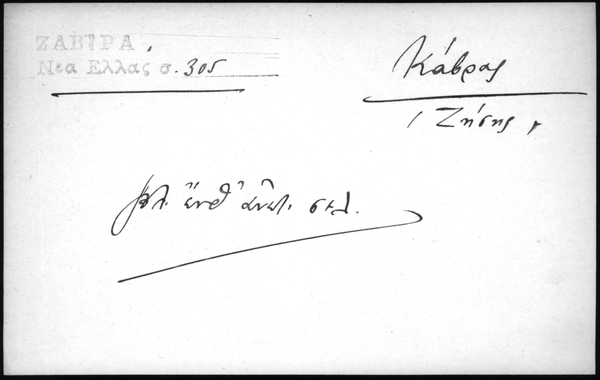 ΖΑΒΙΡΑ.
Νεα Ελλας σ. 305
Κάβρας
Ζήσης,
βλ. ἔνθ' ἀνωτ. σελ.